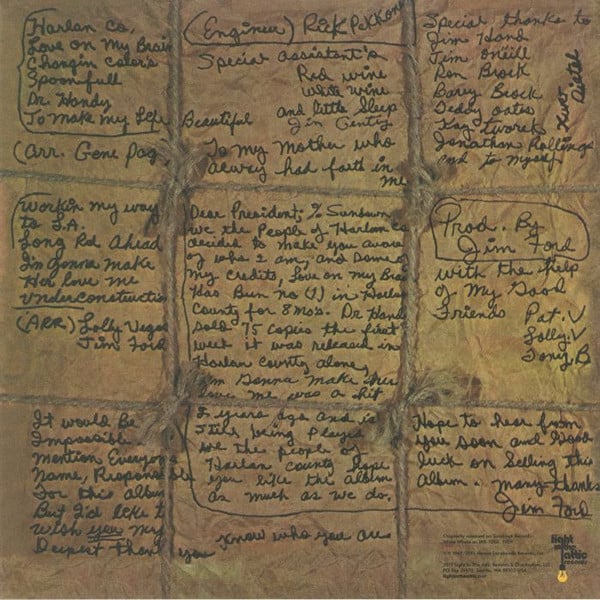 Harlan Co.
Love on My Brain
Changin Colors
Spoonfull
Dr. Handy
To Make my Life Beautiful
(Arr. Gene Pag
(Engineer) Rick Pekkonen
Special assistant's
Red wine
white wine
and little Sleep
Jim Genty
To my Mother who
always had faith in
me
Special thanks to
Jim Hand
Jim Oneill
Ron Brock
Barry Brock
Teddy oates
Kay
Jonathan Rollings
and to myself
Workin my way
to L.A.
Long Rd Ahead
I'm Gonna Make
Her love me
Under Construction
(ARR) Lolly Vegas
Jim Ford
Dear President; % Sundown
We the People of Harlan Co
decided to make you aware
of who I am, and some of
my Credits, Love on my Brain
Has Bun no (1) in Harlan
County for 8 Mos. Dr Hand
sold 75 copies the first
week it was released in
Harlan County alone,
I'm Gonna Make Her
love me was a hit
2 years ago and is
still being played
We the people of
Harlan County hope
you like the album
as much as we do,
Prod. By
Jim Ford
with the help
of My Good
Friends Pat. V
Lolly. V
Tony, B
It would Be
Impossible
Mention Everyone
Name, Responsible
For this album
But I'd like t
Wish you my
Deepest Than you
know who you are
Hope to hear from
you soon and Good
luck on Selling this
album.. many thanks
Jim Ford
Originally released on Sundown Records
light
in the
attic
records